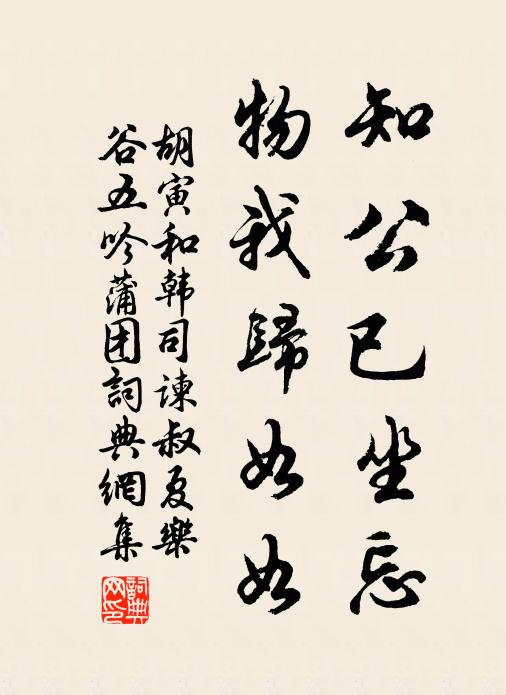 知公已坐忘
物我歸如如
胡寅和韩司谏叔夏樂
谷五吟蒲团詞典網集
詞典網印